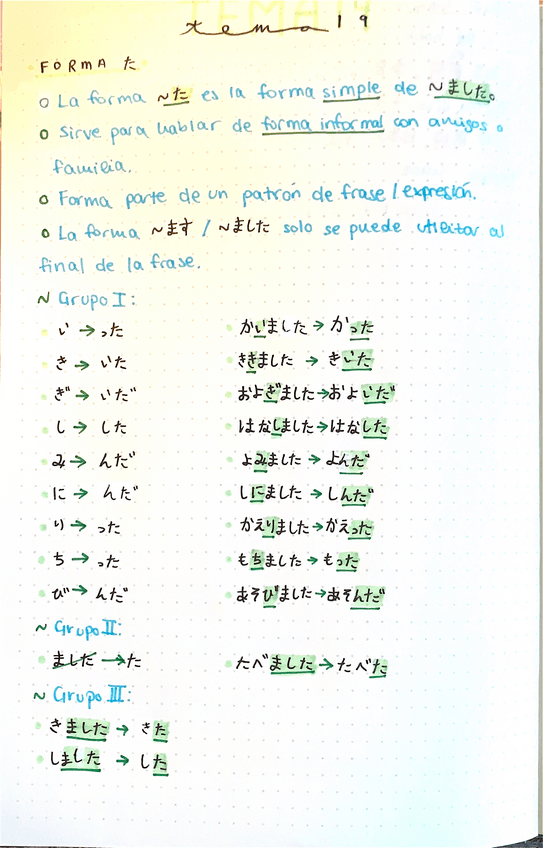 tema 19
FORMA た
○ La forma ~た es la forma simple de ~ました。
○ Sirve para hablar de forma informal con amigos o
familia.
○ Forma parte de un patrón de frase / expresión.
○ La forma ~ます / ~ました solo se puede utilizar al
final de la frase.
~ Grupo I:
い → った かいました → かった
き → いた ききました → きいた
ぎ → いだ およぎました → およいだ
し → した はなしました → はなした
み → んだ よみました → よんだ
に → んだ しにました → しんだ
り → った かえりました → かえった
ち → った もちました → もった
び → んだ あそびました → あそんだ
~ Grupo II:
ました → た たべました → たべた
~ Grupo III:
きました → きた
しました → した